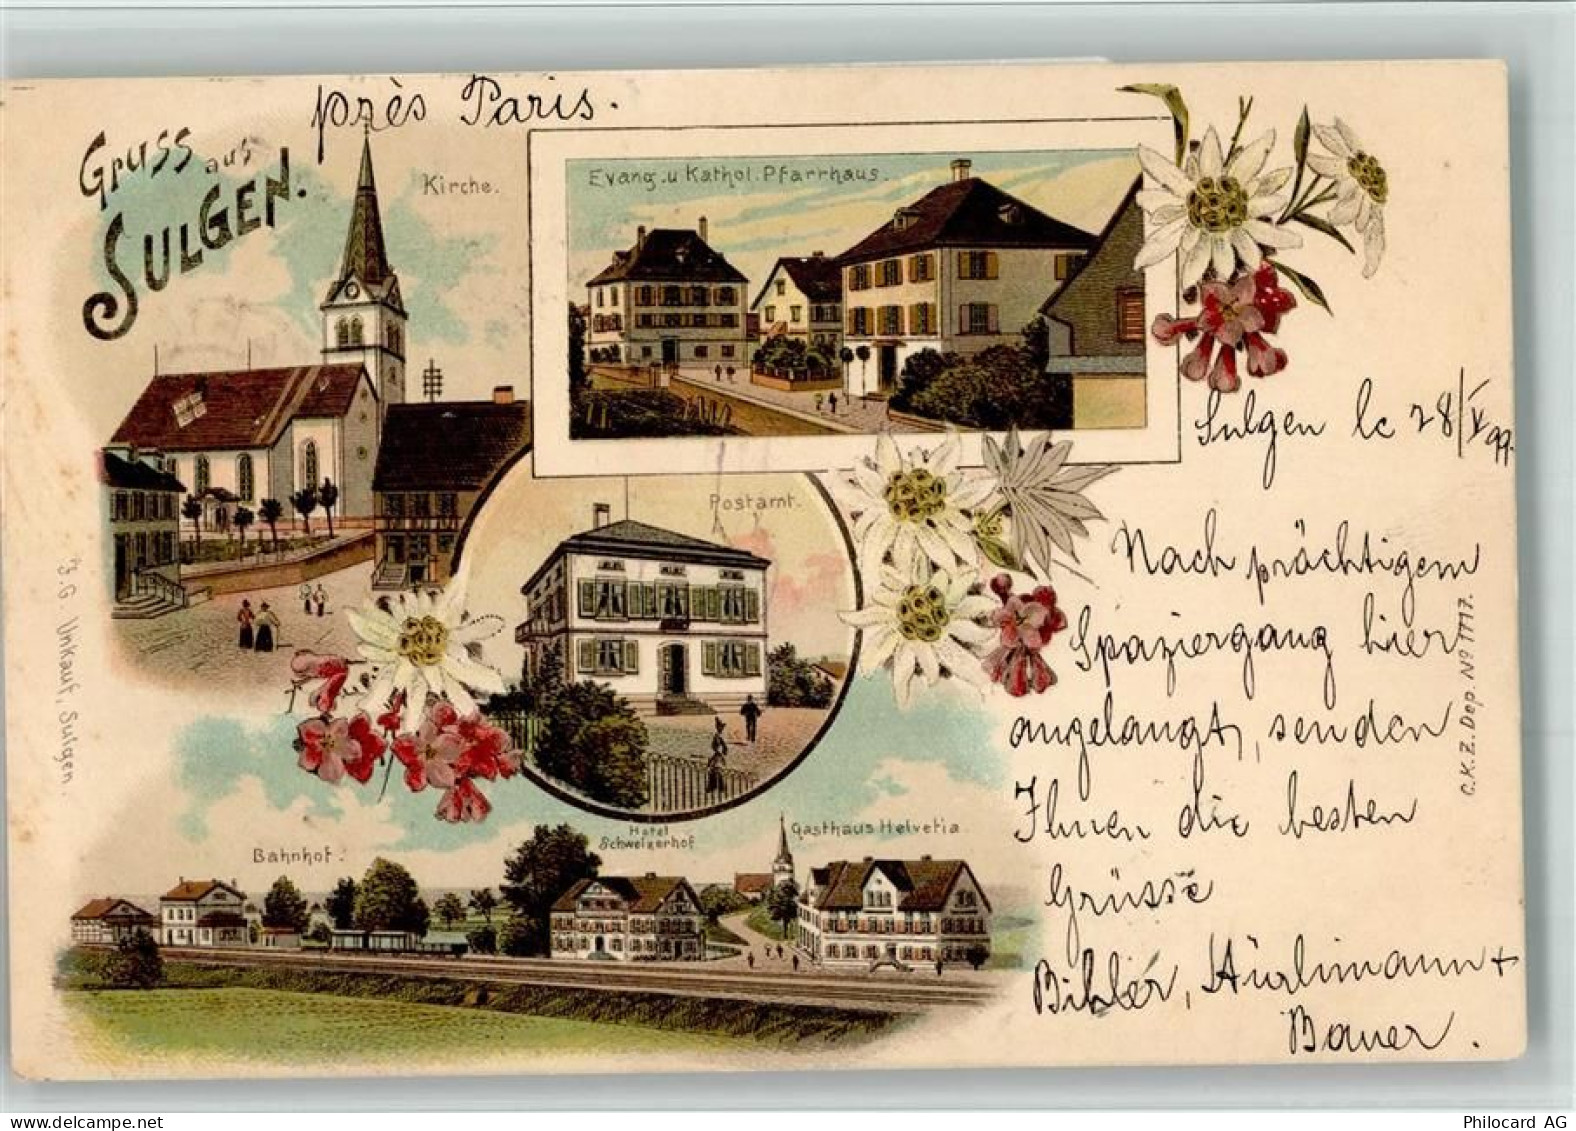 près Paris.
Gruss aus
SULGEN.
Kirche.
Evang. u Kathol. Pfarrhaus.
Postamt.
Bahnhof.
Hotel
Schweizerhof
Gasthaus Helvetia.
J. G. Unkauf, Sulgen.
Sulgen le 28/V 99.
Nach prächtigem
Spaziergang hier
angelangt, senden
Ihnen die besten
Grüsse
Bihler, Hürlimann +
Bauer.
C.K.Z. Dep. No 1117.
delcampe.net
Philocard AG